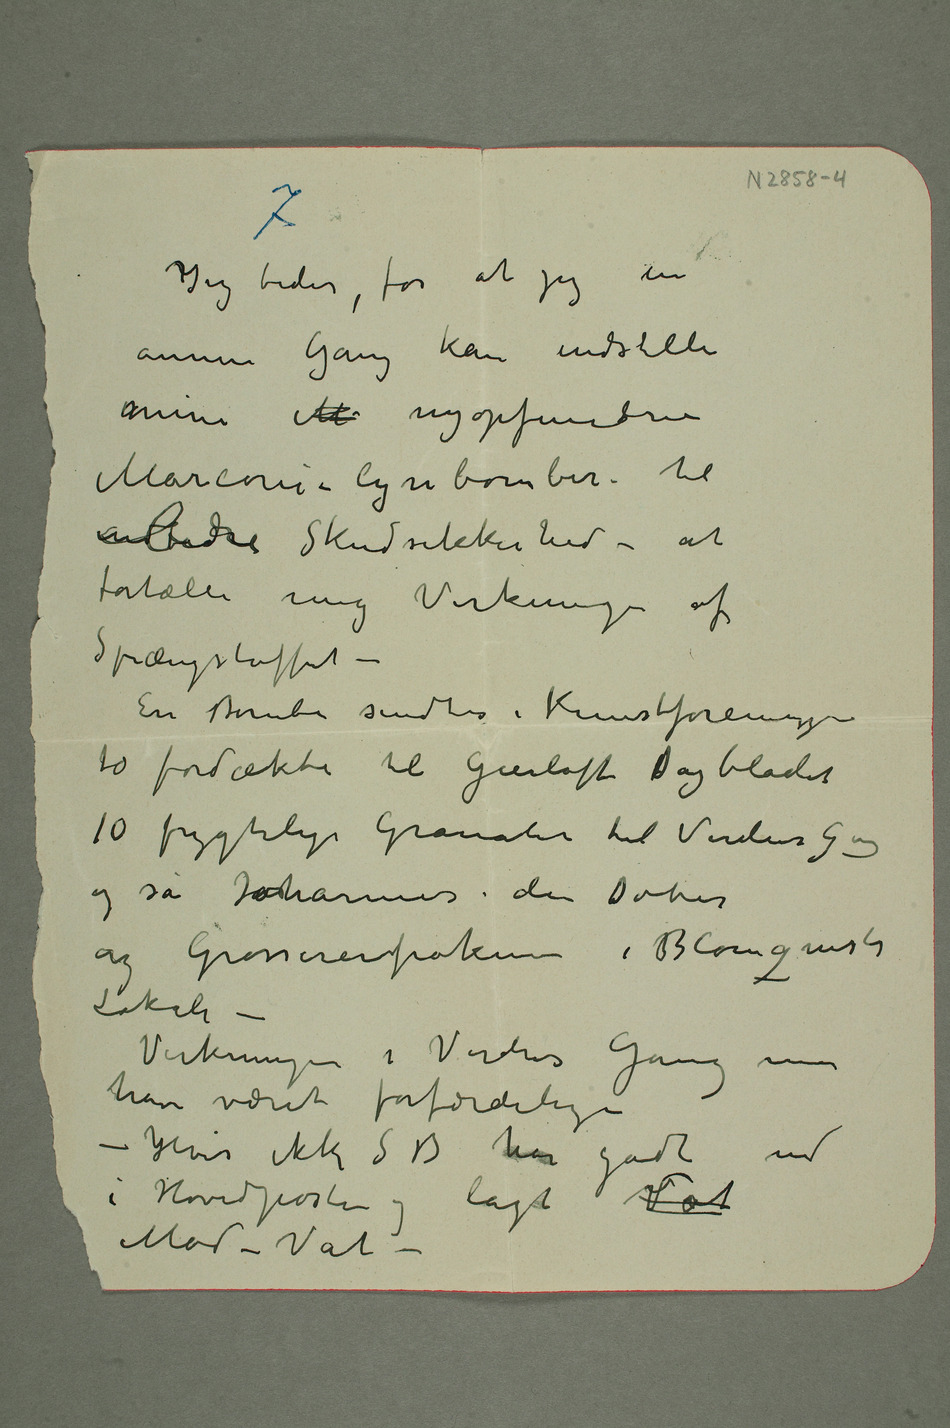 N2858-4
7
Jeg beder, for at jeg en
annen Gang kan indstille
mine M nyopfundne
Marconi-lynbomber til
bedre Skudsikkerhed – at
fortælle mig Virkninge af
Sprængstoffet –
En Bombe sendtes i Kunstforeninge
to fordækte til Gierløff Dagbladet
10 frygtelige Granater til Verdens Gang
og så Johannes den Døber
og Grossererfrøkenen i Blomqvists
Lokale –
Virkningen i Verdens Gang må
have været forfærdelige
– Hvis ikke SB har gådt ned
i Hovedposten og lagt Vat
Mod-Vat –